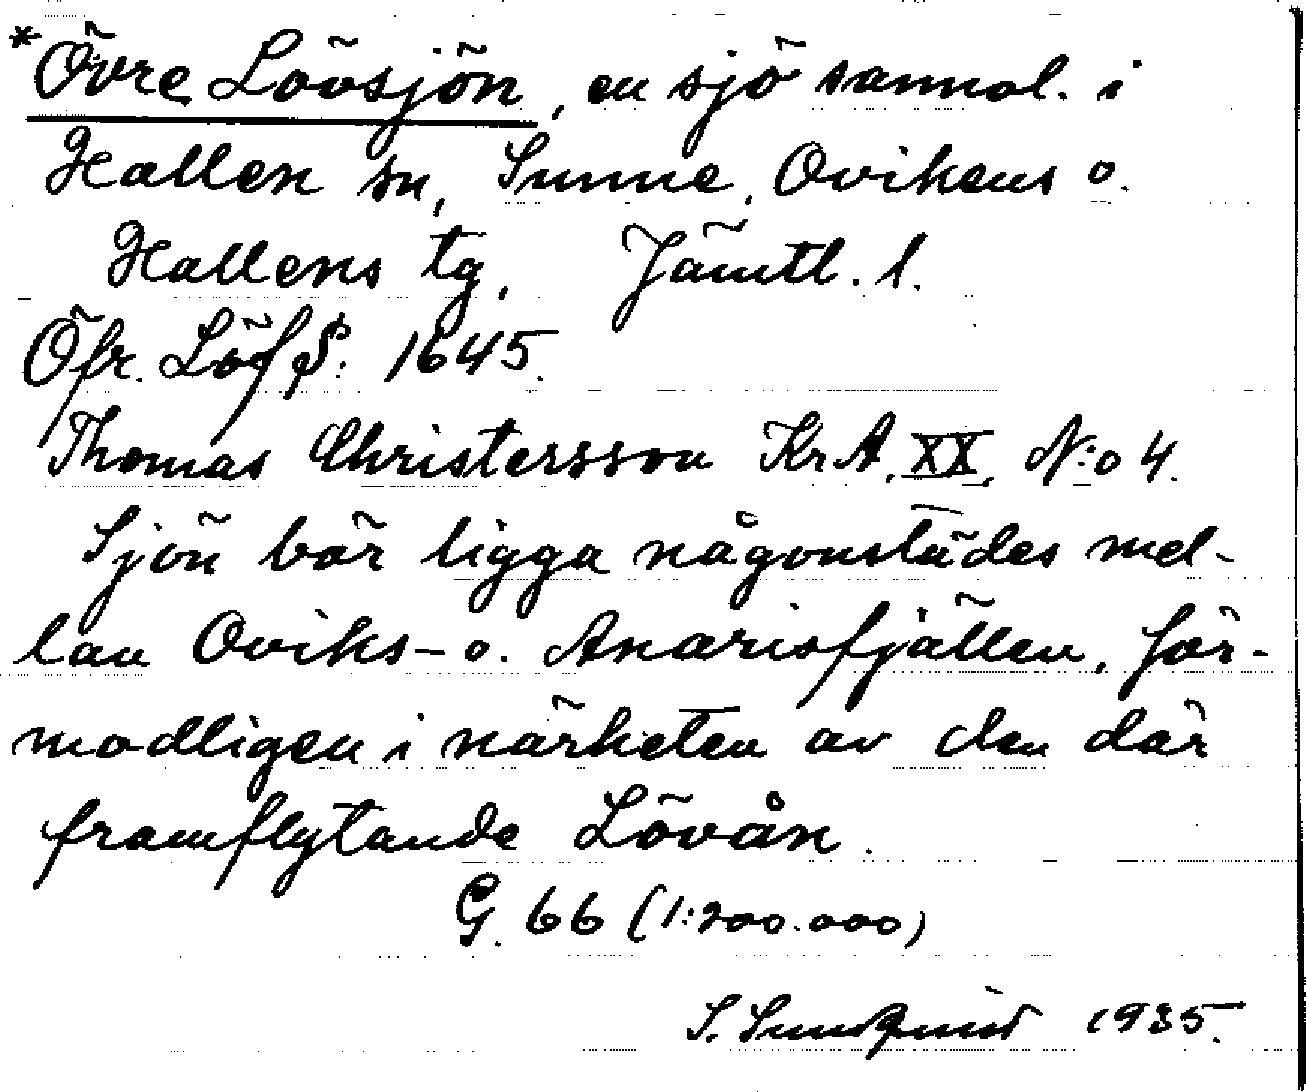 *Övre Lövsjön, en sjö sannol. i
Hallen sn, Sunne, Ovikens o.
Hallens tg, Jämtl. l.
Öfr. Löf S: 1645.
Thomas Christersson KrA, XX, N:o 4.
Sjön bör ligga någonstädes mel-
lan Oviks- o. Anarisfjällen, för-
modligen i närheten av den där
framflytande Lövån.
G. 66 (1:200.000)
S. Sundquist 1935.